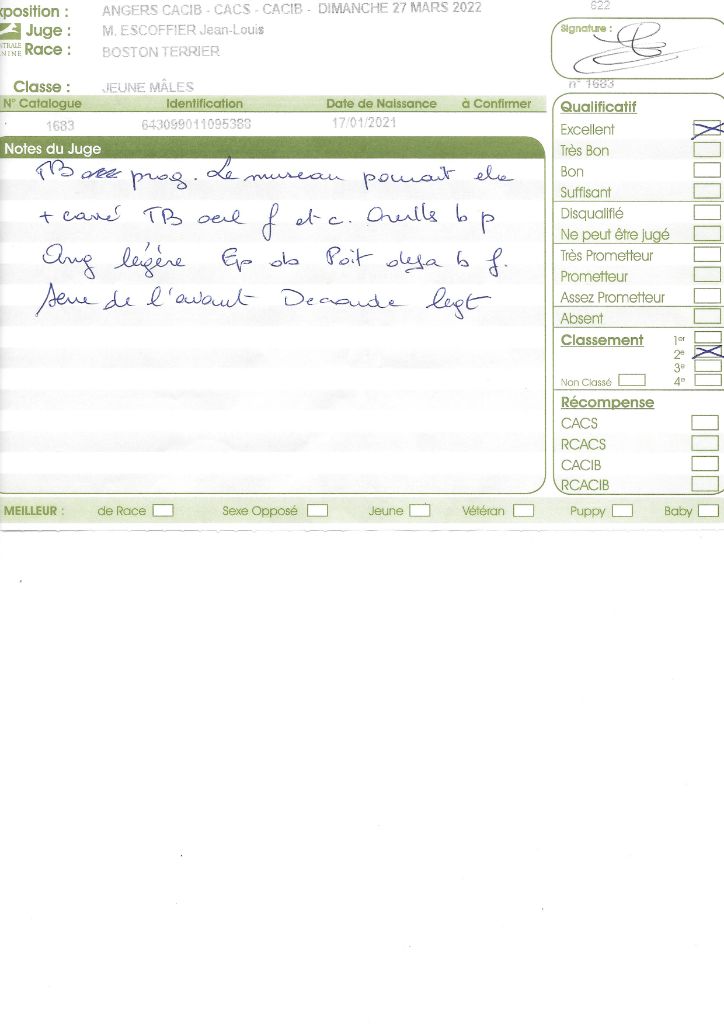 xposition : ANGERS CACIB - CACS - CACIB - DIMANCHE 27 MARS 2022
622
Juge : M. ESCOFFIER Jean-Louis
Signature :
NTRALE
NINE
Race : BOSTON TERRIER
Classe : JEUNE MÂLES
n° 1683
N° Catalogue Identification Date de Naissance à Confirmer
1683 643099011095388 17/01/2021
Notes du Juge
TB prog. Le museau pourrait etre
+ carré TB oeil f et c. Oreills b p
Ang légère Ep Poit deja b f.
Serre de l'avant legt
Qualificatif
Excellent
Très Bon
Bon
Suffisant
Disqualifié
Ne peut être jugé
Très Prometteur
Prometteur
Assez Prometteur
Absent
Classement 1er
2e
3e
Non Classé 4e
Récompense
CACS
RCACS
CACIB
RCACIB
MEILLEUR : de Race Sexe Opposé Jeune Vétéran Puppy Baby